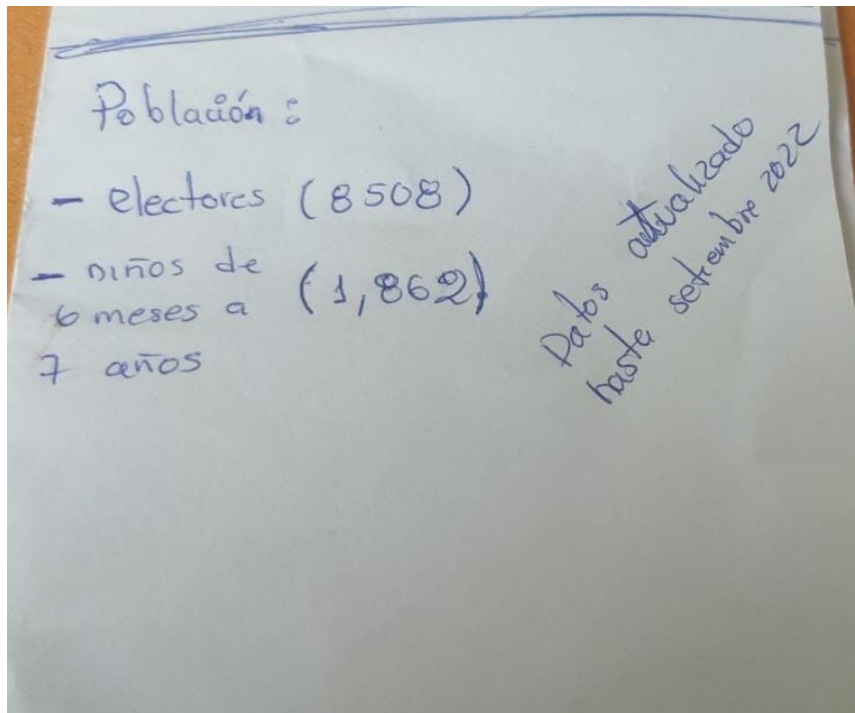 Población:
- electores (8508)
- niños de
6 meses a (1,862)
7 años
Datos actualizado
hasta setiembre 2022